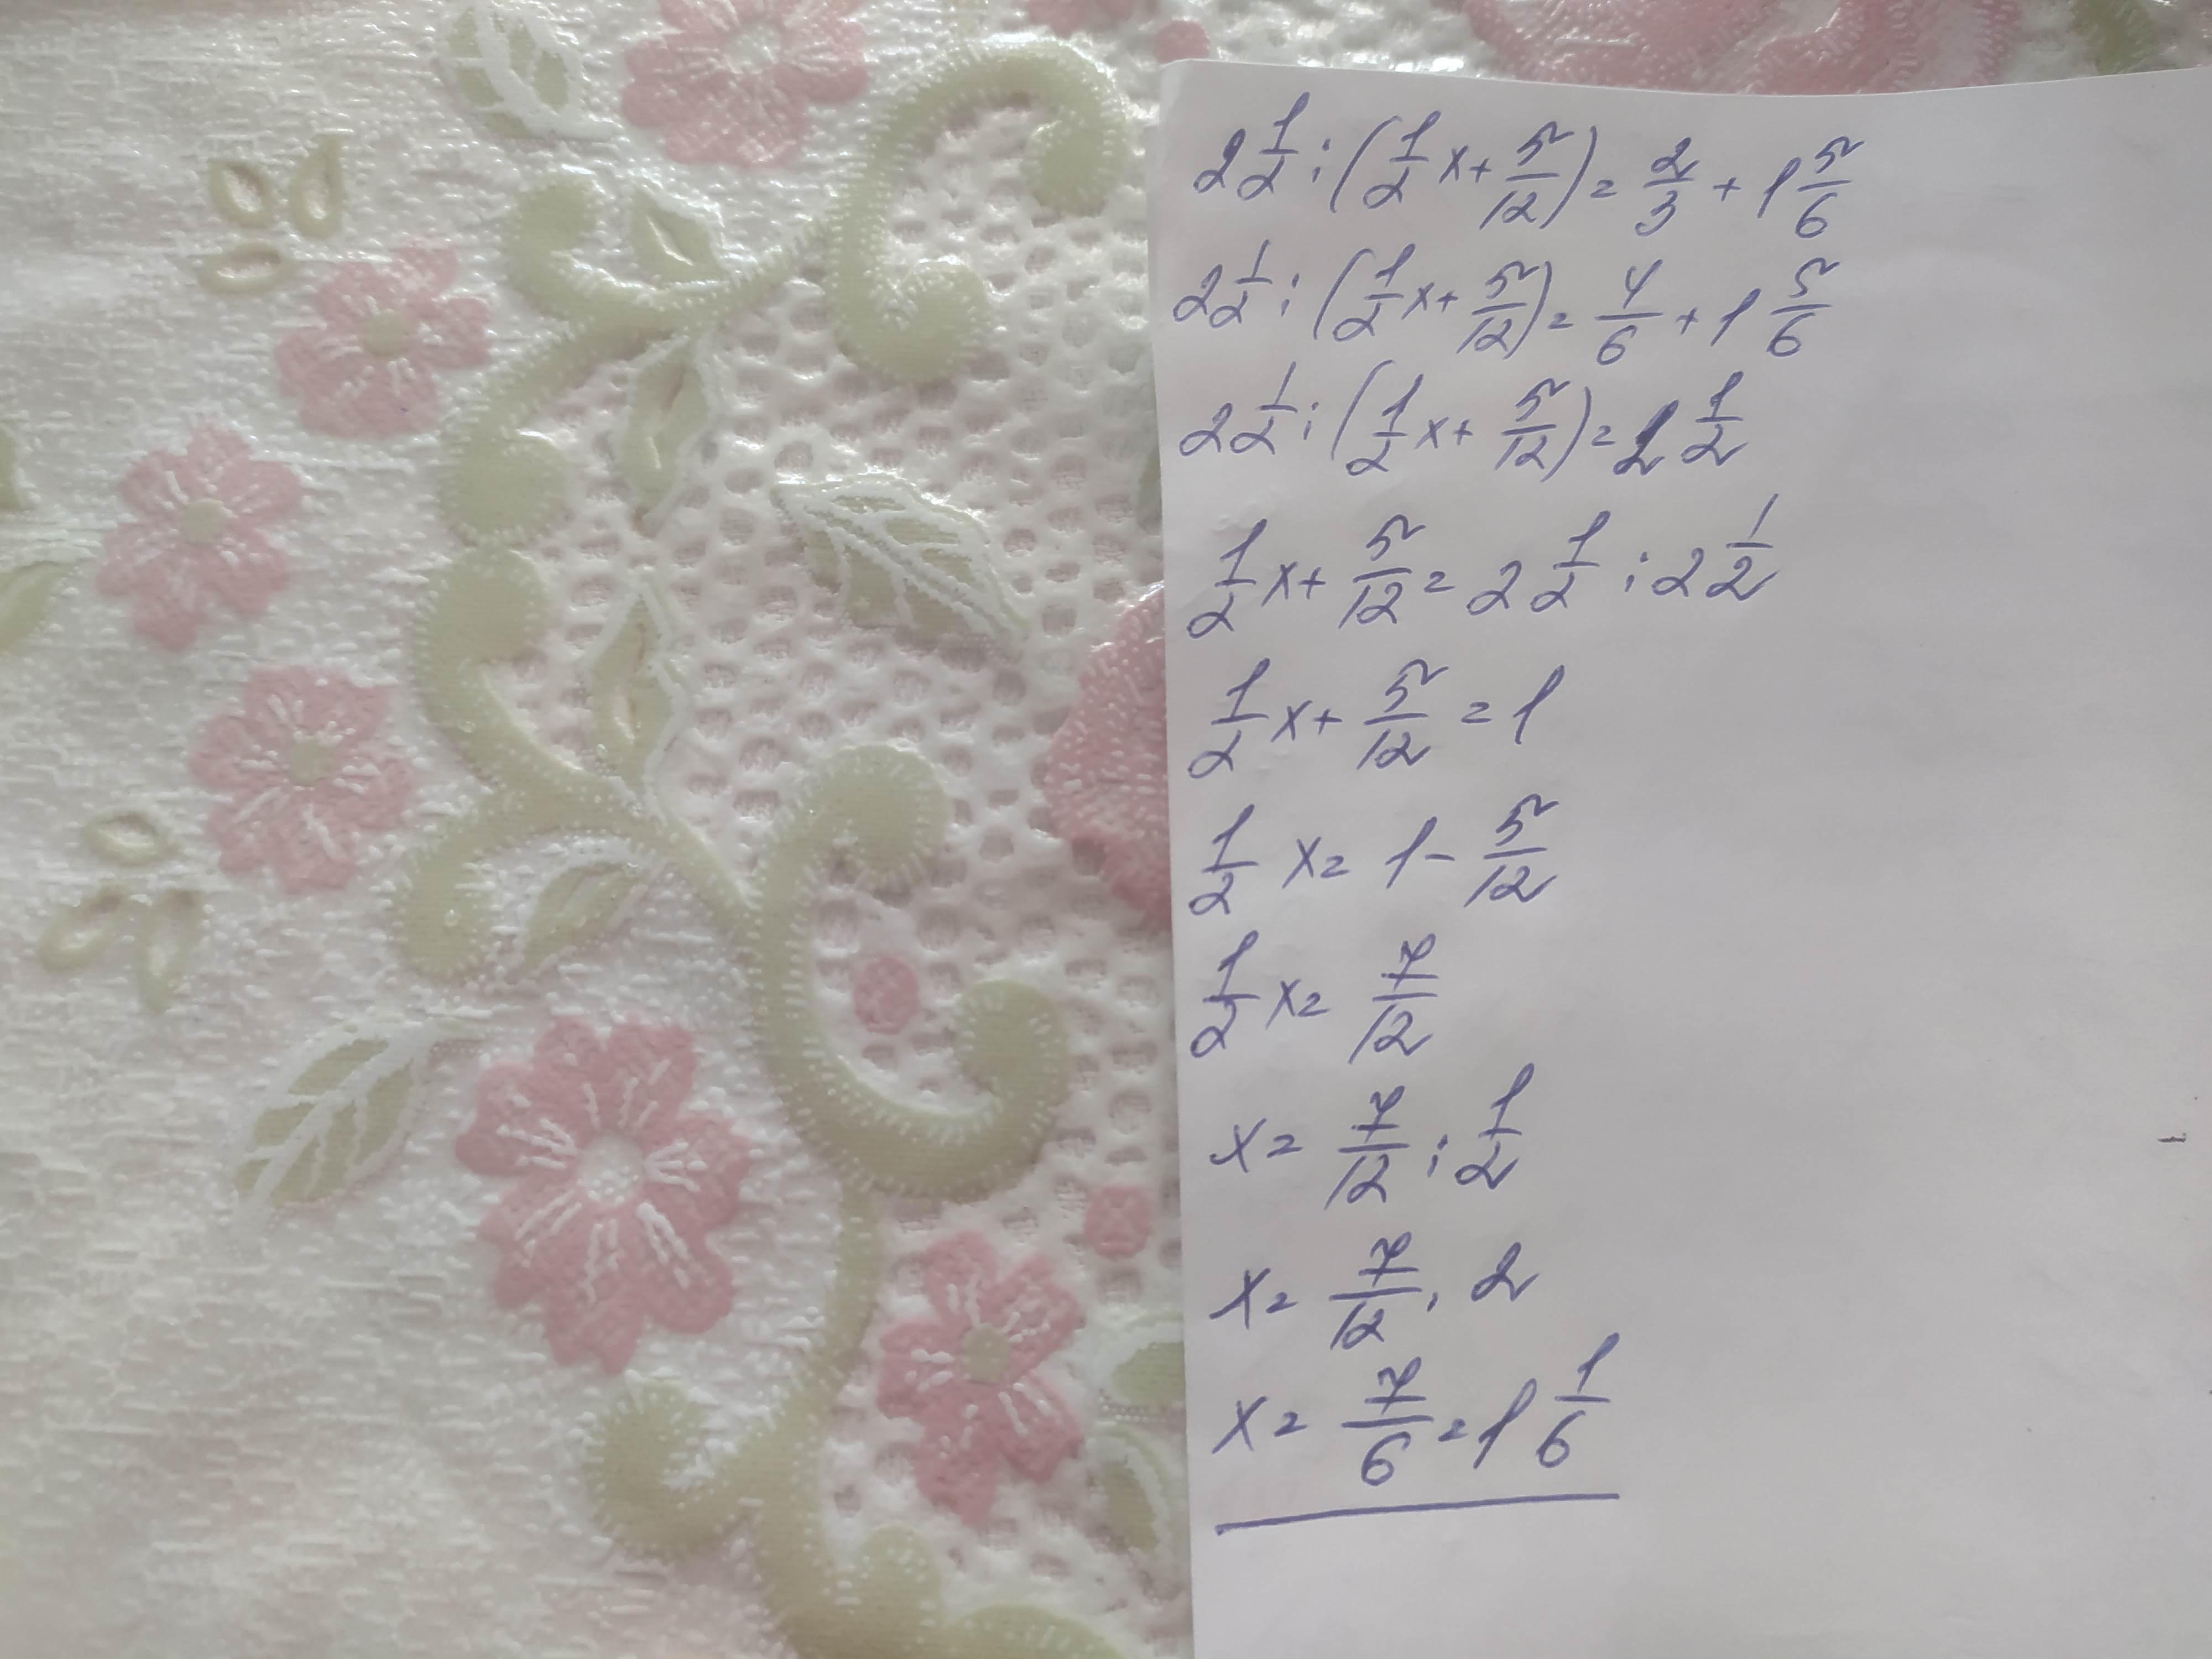 2 1/2 : (1/2 x + 5/12) = 2/3 + 1 5/6
2 1/2 : (1/2 x + 5/12) = 4/6 + 1 5/6
2 1/2 : (1/2 x + 5/12) = 2 1/2
1/2 x + 5/12 = 2 1/2 : 2 1/2
1/2 x + 5/12 = 1
1/2 x = 1 - 5/12
1/2 x = 7/12
x = 7/12 : 1/2
x = 7/12 · 2
x = 7/6 = 1 1/6